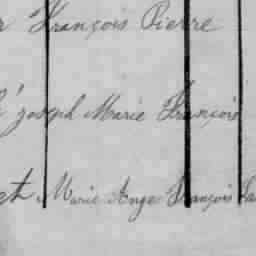 François Pierre
Joseph Marie François
et Marie Ange François